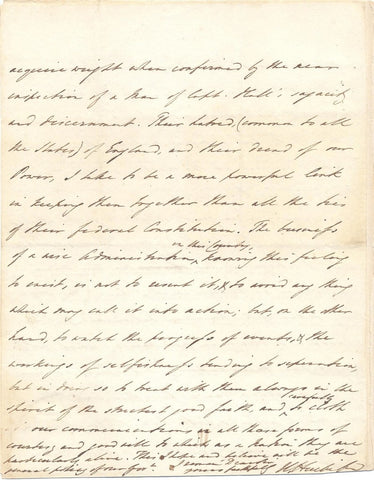 acquire weight when confirmed by the near
inspection of a Man of Capt. Hall's sagacity
and discernment. Their hatred, (common to all
the States,) of England, and their dread of our
Power, I take to be a more powerful link
in keeping them together than all the ties
of their federal Constitution. The business
in this Country,
of a wise Administration, knowing this feeling
to exist, is not to resent it, & to avoid any thing
which may call it into action; but, on the other
hand, to watch the progress of events, & the
workings of selfishness tending to separation,
but in doing so to treat with them always in the
spirit of the strictest good faith, and carefully to cloth
our communications in all those forms of
courtesy and good will to which as a Nation they are
particularly alive. This I hope and believe will be the
general policy of our Govt. I remain
yours faithfully